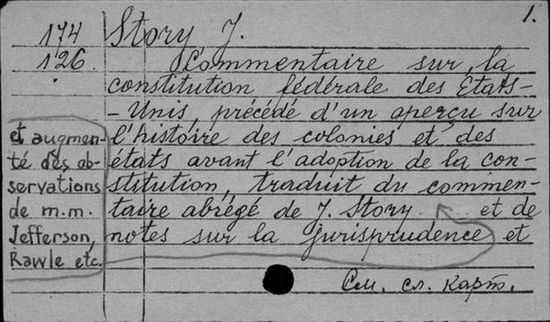 1.
174
126.
Story J.
Commentaire sur la
constitution fédérale des États-
-Unis, précédé d'un aperçu sur
l'histoire des colonies et des
états avant l'adoption de la con-
stitution, traduit du commen-
taire abrégé de J. Story et de
notes sur la jurisprudence et
et augmen-
té des ob-
servations
de m.m.
Jefferson,
Rawle etc.
См. сл. карт.